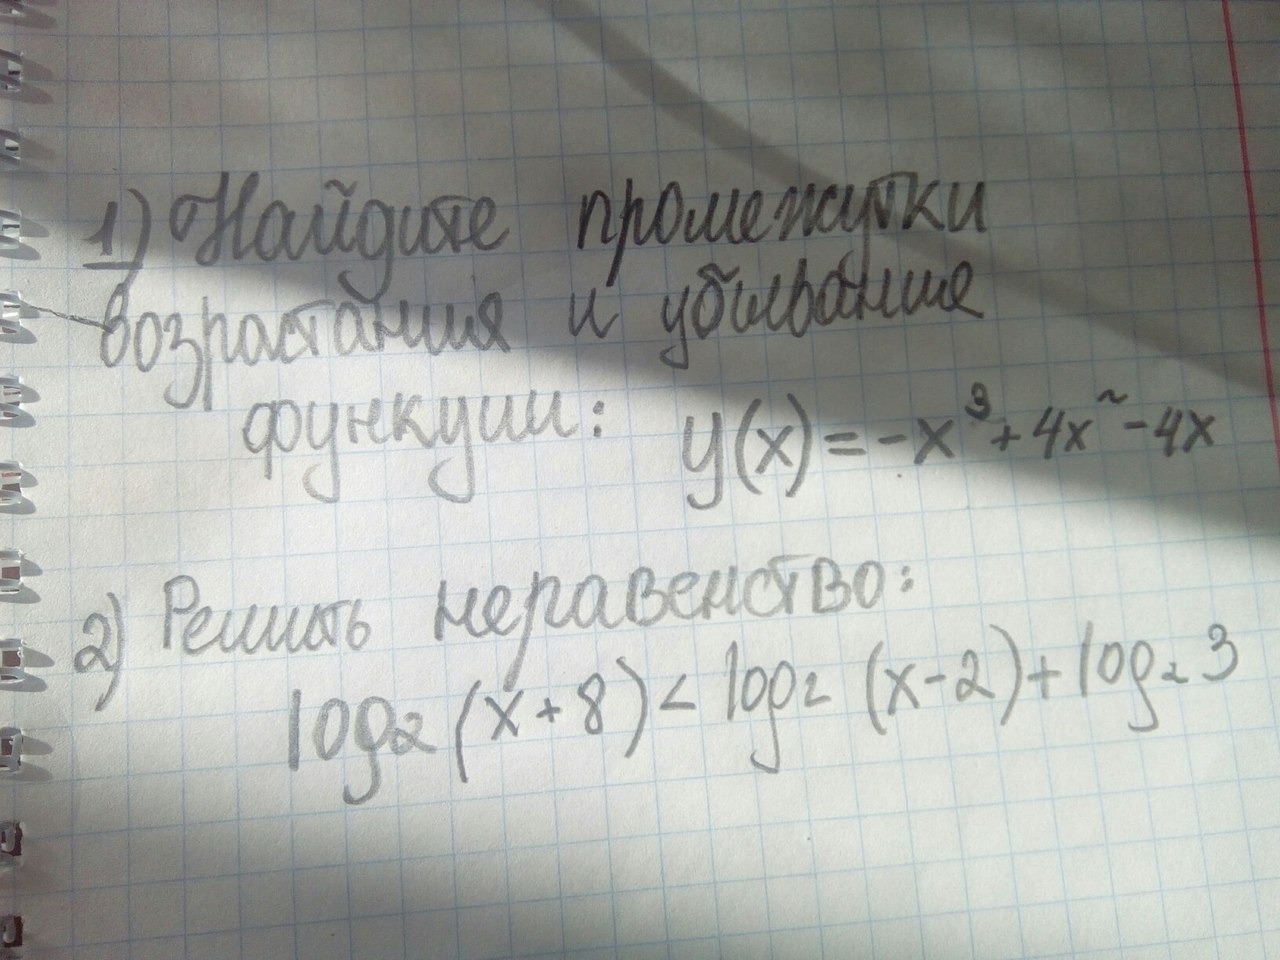 1) Найдите промежутки
возрастания и убывания
функции: y(x) = -x³ + 4x² - 4x
2) Решить неравенство:
log₂ (x + 8) < log₂ (x - 2) + log₂ 3